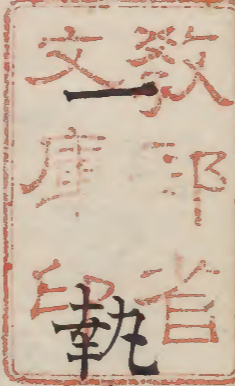 教部省
文庫印
一執